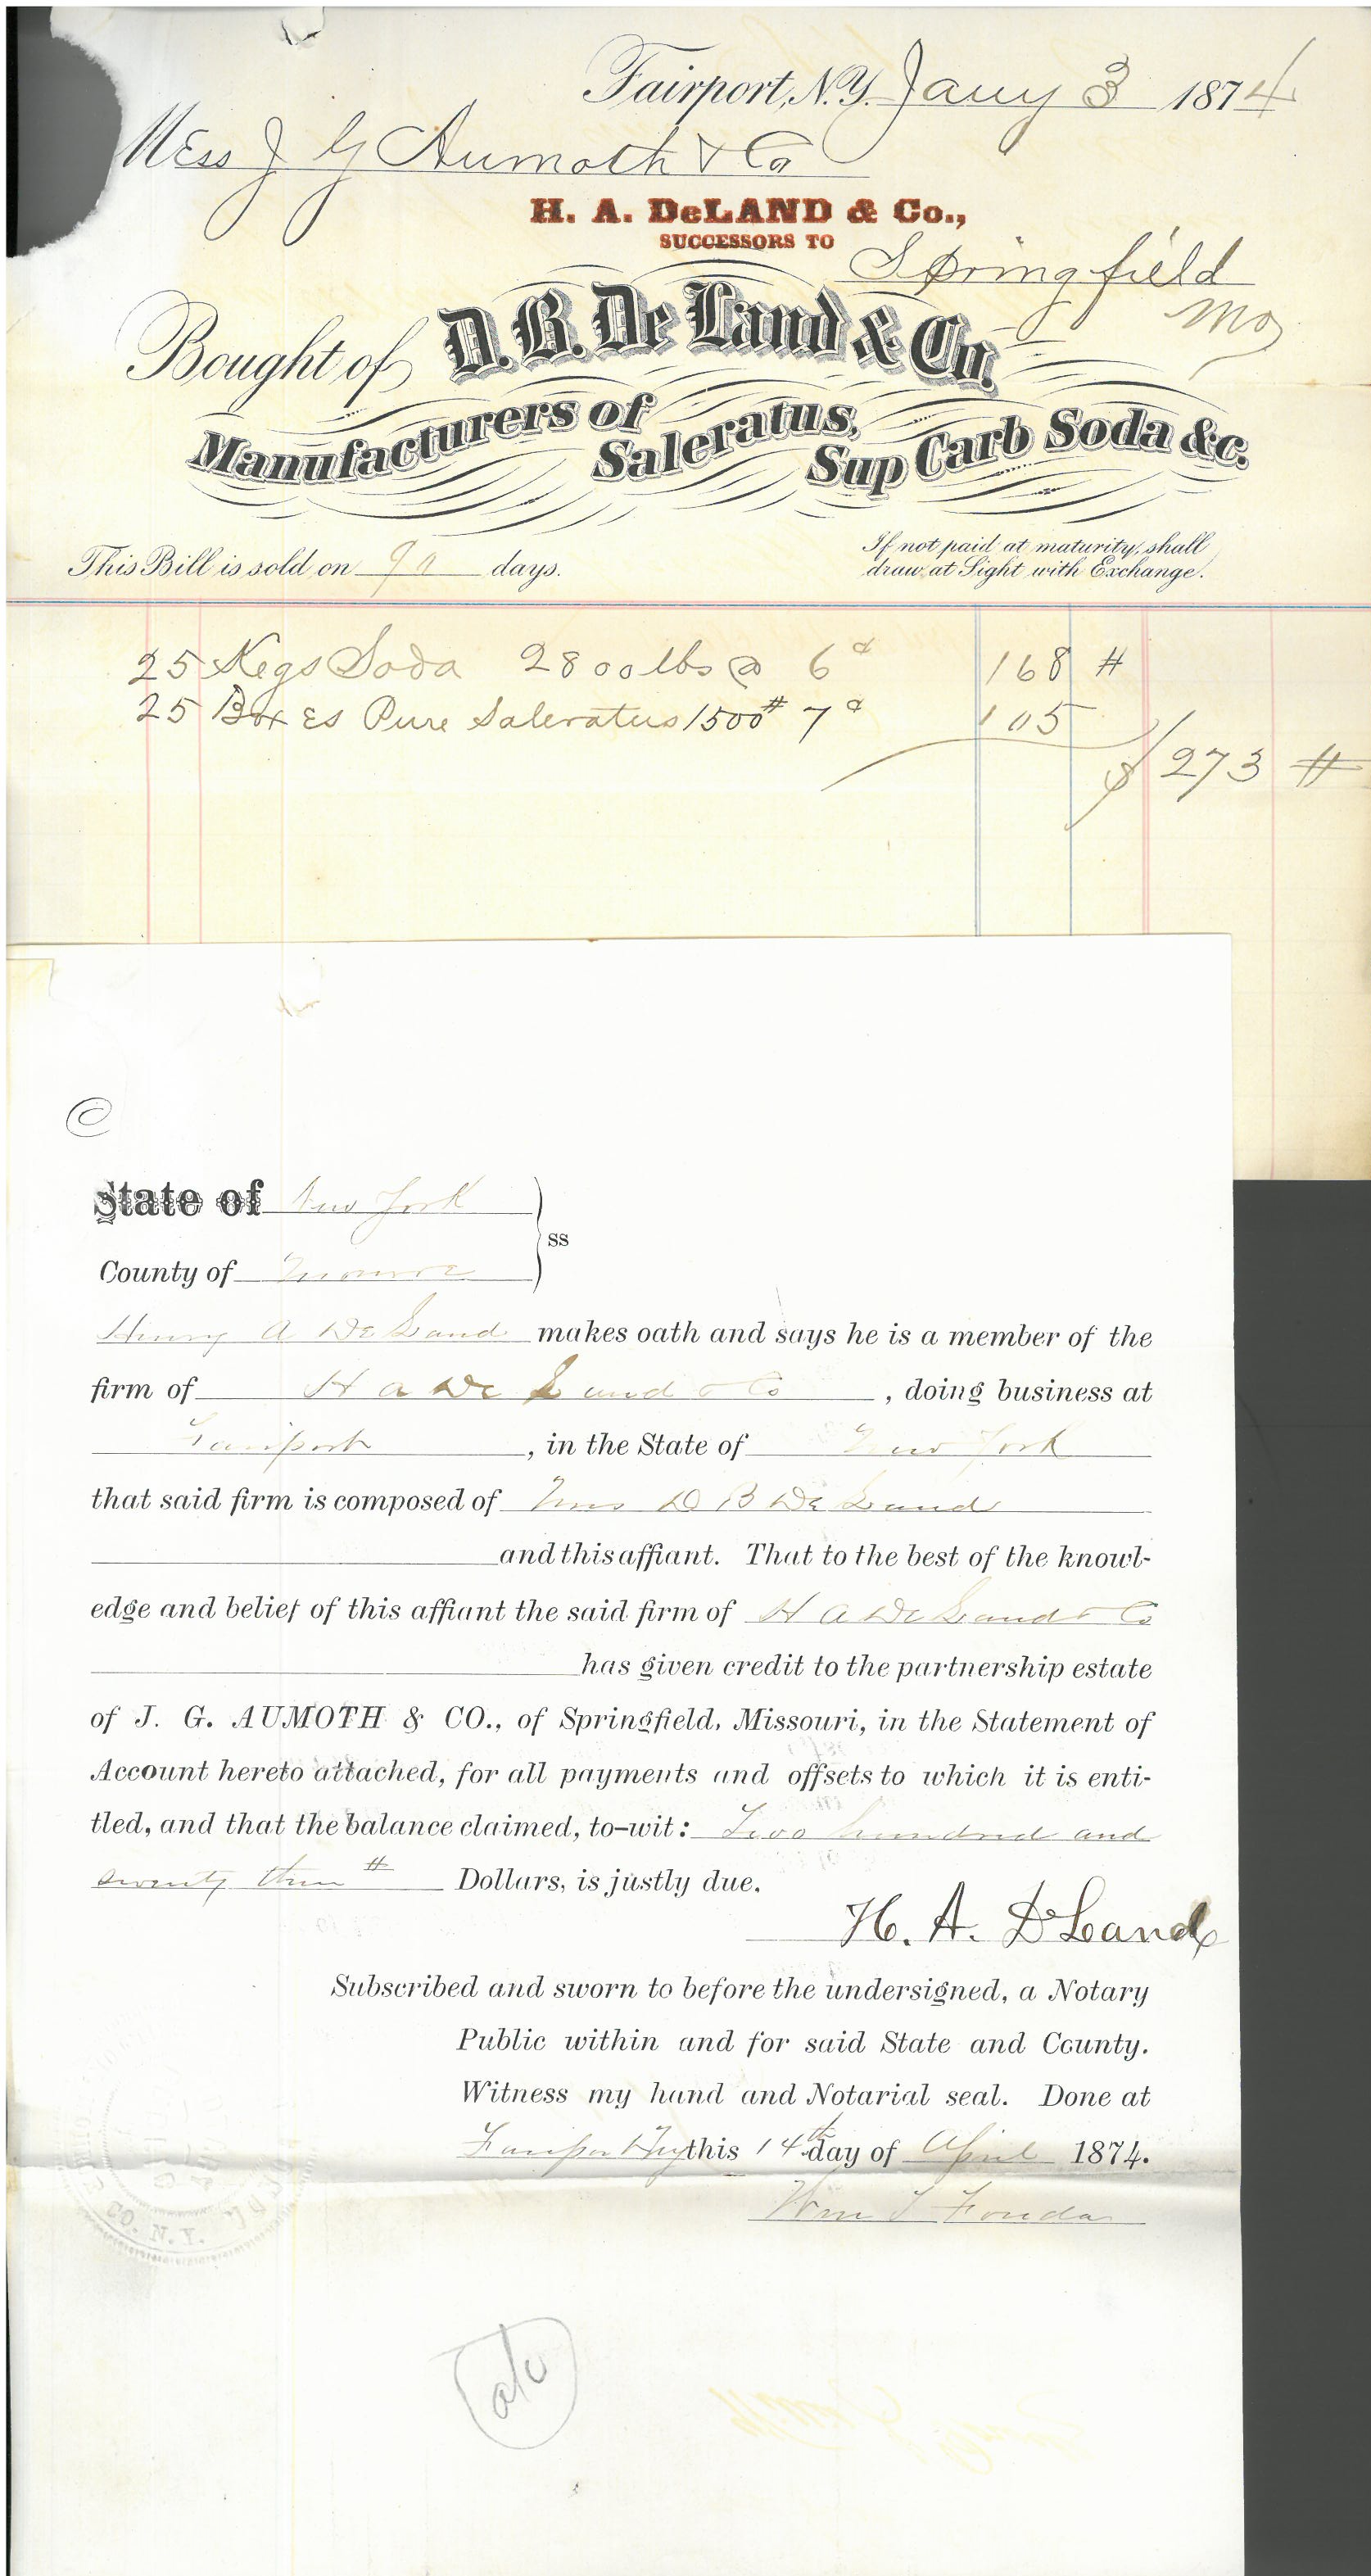 Fairport, N.Y. Jany 3 1874
Mess J G Aumoth & Co
H. A. DeLAND & Co.,
SUCCESSORS TO
Springfield
Mo
Bought of D. B. De Land & Co.
Manufacturers of Saleratus, Sup Carb Soda &c.
This Bill is sold on 90 days.
If not paid at maturity, shall
draw at Sight with Exchange.
25 Kegs Soda 2800 lbs @ 6¢ 168 #
25 Boxes Pure Saleratus 1500# 7¢ 105
$ 273 #
C
State of New York
ss
County of Monroe
Henry A DeLand makes oath and says he is a member of the
firm of H A De Land & Co, doing business at
Fairport, in the State of New York
that said firm is composed of D B De Land
and this affiant. That to the best of the knowl-
edge and belief of this affiant the said firm of H A DeLand & Co
has given credit to the partnership estate
of J. G. AUMOTH & CO., of Springfield, Missouri, in the Statement of
Account hereto attached, for all payments and offsets to which it is enti-
tled, and that the balance claimed, to-wit: Two hundred and
seventy three # Dollars, is justly due.
H. A. DeLand
Subscribed and sworn to before the undersigned, a Notary
Public within and for said State and County.
Witness my hand and Notarial seal. Done at
Fairport NY this 14th day of April 1874.
Wm J Fonda
CO. N.Y.
ok